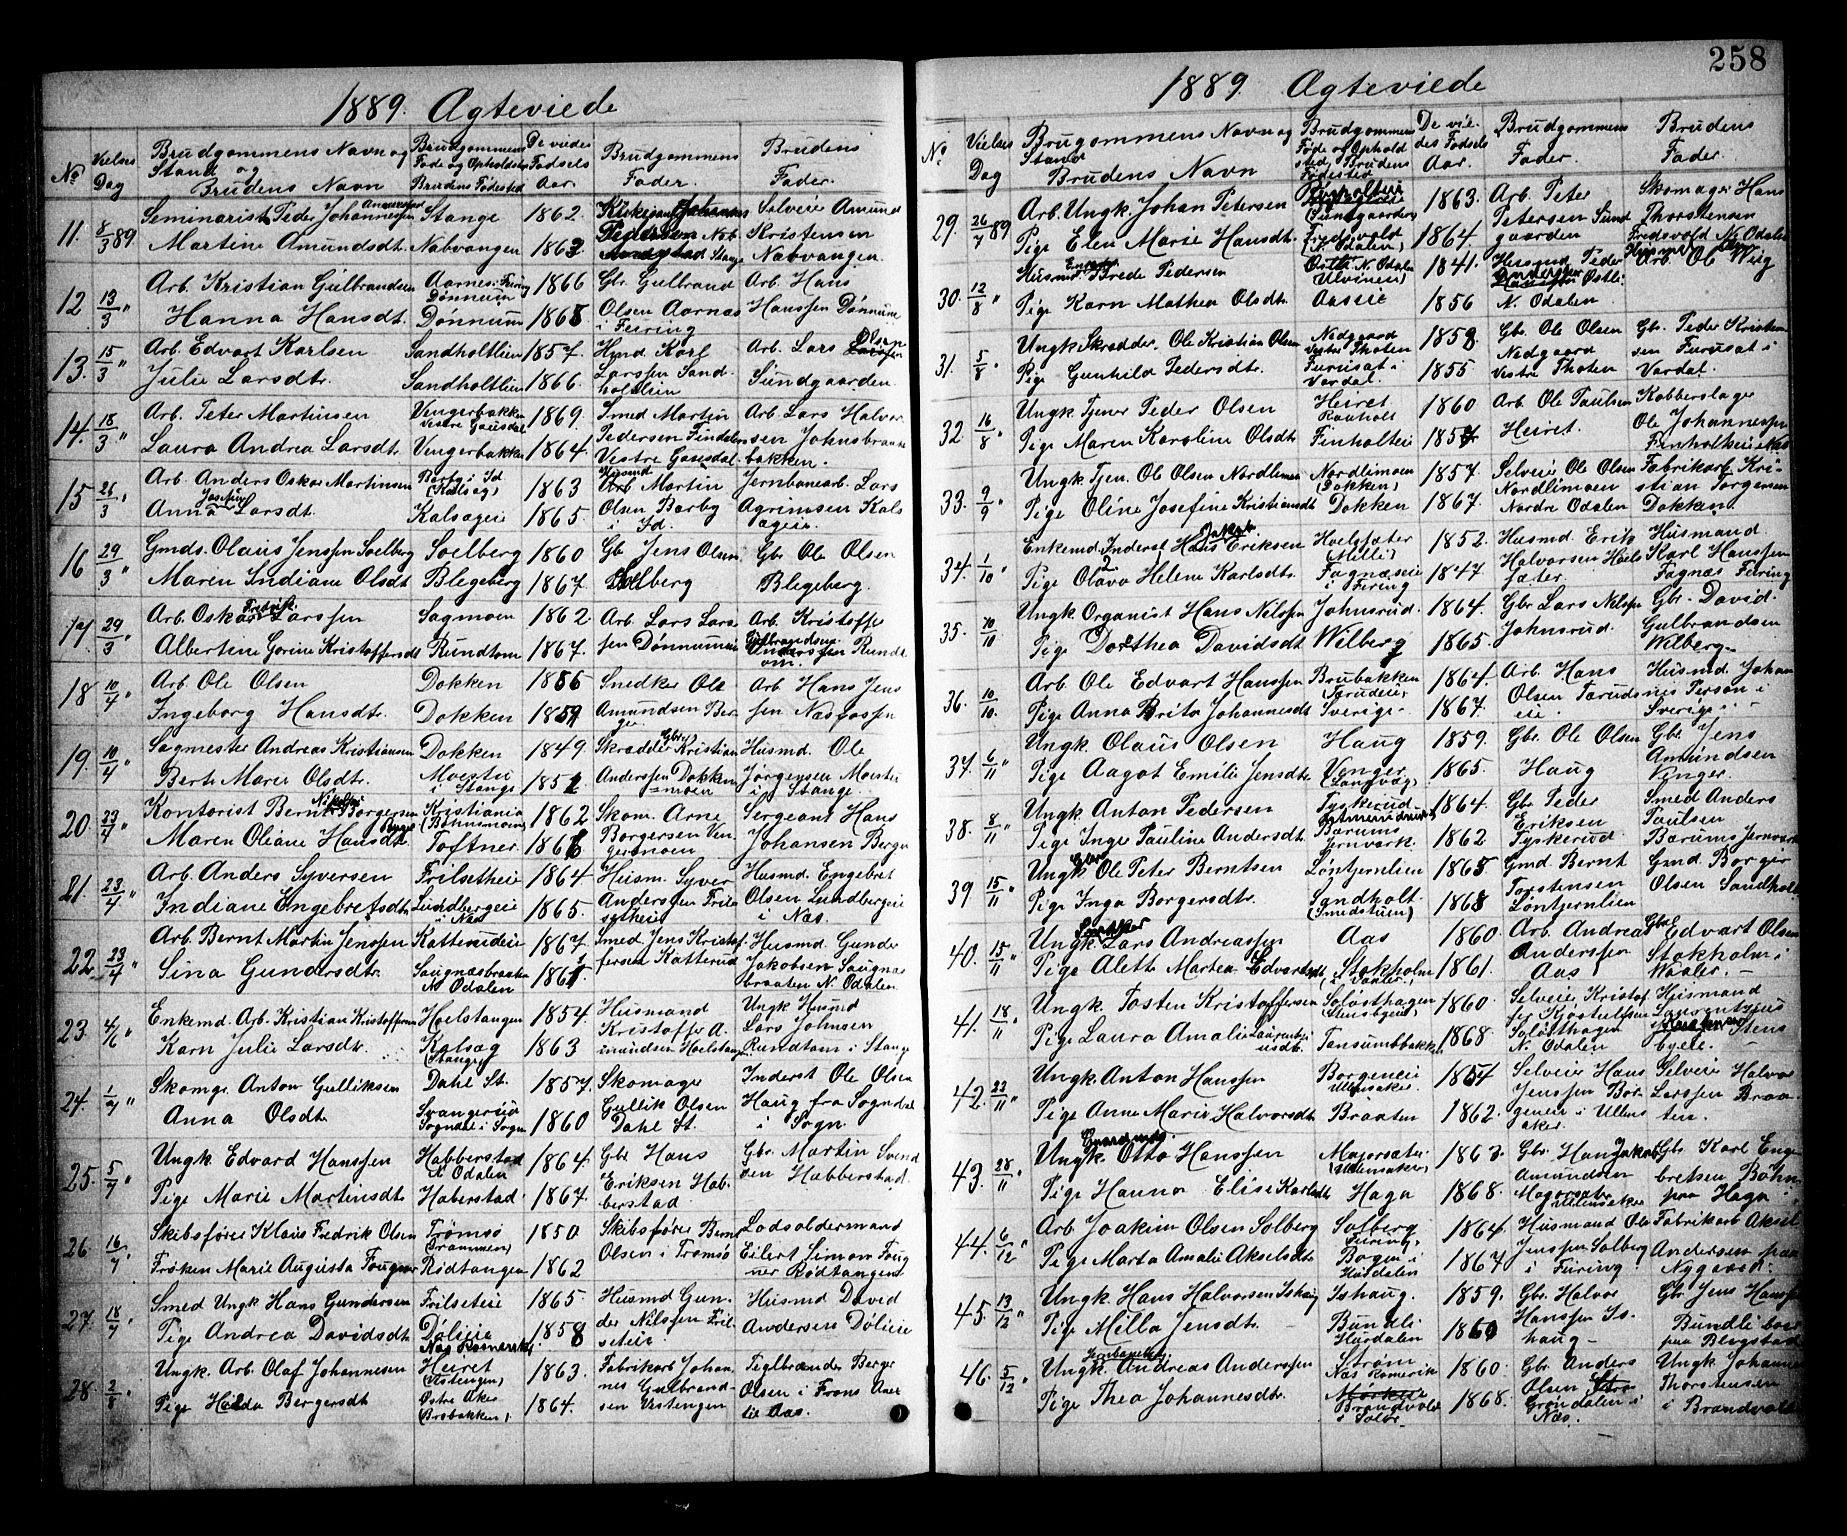 258
1889. Ægteviede
No
Vielses Dag
Brudgommens Navn og Stand og Brudens Navn
Brudgommens Føde og Opholdsted Brudens Fødested
De viedes Fødsels Aar
Brudgommens Fader.
Brudens Fader.
11. 8/3 89. Seminarist Peder Johannessen Stange 1862. Selveier Amund
Martine Amundsdt. Nabvangen 1863 Kristensen Nabvangen.
12 13/3 " Arb. Kristian Gulbrandsen Aarnes. Feiring 1866 Gbr. Gulbrand Arb. Hans
Hanna Hansdt. Dønnum 1868 Olsen Aarnas i Feiring Hanssen Dønnum
13. 15/3 " Arb. Edvart Karlsen Sandholtlien 1857. Hmd. Karl Arb. Lars Olsen
Julie Larsdt. Sandholtlien 1866. Larssen Sandholtlien Sundgaarden.
14. 18/3 " Arb. Peter Martinsen Vengerbakken Vestre Gausdal 1869. Smed Martin Arb. Lars Halvor
Laura Andrea Larsdt. Vengerbakken 1864. Pedersen Vestre Gausdal. sen Johnsbraatebakken.
15 26/3 " Arb. Anders Oskar Martinsen Barby i Id (Kalsag) 1863 Husmd Arb Martin Jernbanearb. Lars
Anna Josefine Larsdt. Kalsageie 1865. Olsen Barby i Id. Agrimsen Kalsageie.
16 29/3 " Gmds. Olaus Jenssen Soelberg Soelberg 1860 Gb Jens Olsen Gbr. Ole Olsen
Maren Indiane Olsdt Blegeberg 1867. Solberg Blegeberg.
17 29/3 Arb. Oskar Fredrik Larssen Sagmoen 1862 Arb. Lars Lars Arb. Kristoffer
Albertine Gorine Kristoffersdt Rundtom 1867. sen Dønnumeie Gulbrandsen Rundtom.
18 10/4 " Arb. Ole Olsen Dokken 1856 Snedker Ole Arb. Hans Jens
Ingeborg Hansdt. Dokken 1859 Amundsen Berger sen Næsfossen
19. 10/4 " Sagmester Andreas Kristiansen Dokken 1849. Skrædder Gbr. Kristian Husmd. Ole
Berte Marie Olsdt. Moestu i Stange 1852 Anderssen Dokkenmoen Jørgensen Moestu i Stange.
20. 23/4 " Kontorist Bernt Nikolai Borgersen Kristiania (Bohnsmoen) 1862 Skom. Arne Sergeant Hans
Maren Oliane Hansdt Toftner. 1868 Borgersen Vengermoen Johansen Berger
21. 23/4 " Arb. Anders Syversen Frilsetheie 1864 Husm. Syver Husmd. Engebret
Indiane Engebretsdt. Lundbergeie i Næs 1865. Anderssen Frilsetheie Olsen Lundbergeie i Næs.
22. 23/4 " Arb. Bernt Martin Jenssen Katterudeie 1867. Smed Jens Kristof Husmd. Gunder
Sina Gundersdt. Saugnæsbraaten N. Odalen 1861. fersen Katterud Jakobsen Saugnæsbraaten N. Odalen.
23. 4/6 " Enkemd. Arb. Kristian Kristoffersen Hoelstangen 1854. Husmand Ungk Husmd
Karn Julie Larsdt. Kalsæg (Stange) 1863 Kristoffer Amundsen Hoelstangen Lars Johnsen Rundtom i Stange
24. 1/7 " Skomgr. Anton Gulliksen Dahl St. 1857. Skomager Inderst Ole Olsen
Anna Olsdt. Svangersia Sogndal i Sogn 1860 Gullik Olsen Dahl St. Haug fra Sogndal i Sogn.
25. 5/7 " Ungk. Edvard Hanssen Habberstad N. Odalen 1864. Gbr Hans Gbr. Martin Svend
Pige Marie Martinsdt. Haberstad. 1867. Eriksen Habberstad sen Habberstad.
26 16/7 " Skibsfører Klaus Fredrik Olsen Tromsø (Drammen) 1850 Skibsfører Bernt Lodsoldermand
Frøken Marie Augusta Fougner Rødtangen 1862 Olsen i Tromsø Eilert Simon Fougner Rødtangen
27. 18/7 " Smed Ungk Hans Gundersen Frilseteie 1865. Husmd Gun Husmd David
Pige Andrea Davidsdt. Dølieie Næs Romerike 1858 der Nilssen Frilseteie. Andersen Dølieie
28. 2/8 " Ungk. Arb. Olaf Johannesen Heiret (Vestengen) 1863. Fabrikarb. Johan Teglbrænder Berger
Pige Hilda Bergersdt Østre Aker (Brobakken) 1864. nes Gulbrandsen Vestengen Olsen i Frons Aaeie Aas.
1889. Ægteviede
No
Vielses Dag
Brugommens Navn og Stand Brudens Navn
Brudgommens Føde og Opholdsted, Brudens Fødested
De viedes Fødsels Aar.
Brudgommens Fader.
Brudens Fader.
29. 26/7 89. Arb. Ungk. Johan Petersen (Sundgaarden) 1863. Arb. Peter Skomager Hans
Pige Elen Marie Hansdt. Fredsvold (N. Odalen) 1864. Petersen Sundgaarden Thorstensen Fredsvold N. Odalen
30. 12/8 " Husmd Enkemd Brede Pedersen N. Odalen 1841. Husmd Peder Arb. Ole Wiig
Pige Karn Mathea Olsdt. Aaseie 1856 N. Odalen
31. 5/8 " Ungk Skrædder. Ole Kristian Olsen Nedgaard Vestre Thoten 1858. Gbr. Ole Olsen Gb. Peder Kristen
Pige Gunhild Pedersdtr. Furusat i Vardal. 1855 Nedgaard Vestre Thoten sen Furusat i Vardal.
32. 16/8 " Ungk. Tjener Peder Olsen Heiret Raaholt 1860 Arb. Ole Paulsen Kobberslager
Pige Maren Karoline Olsdt Finholteie 1857 Heiret. Ole Johannessen Finholteie
33. 9/9 " Ungk Tjen. Ole Olsen Nordlimoen Nordlimoen (Dokken) 1857 Selveie Ole Olsen Fabrikarb. Kri-
Pige Oline Josefine Kristiansdt Dokken 1867. Nordlimoen Nordre Odalen stian Torgersen Dokken.
34. 1/10 " Enkemd. Inderst Hans Jakob Eriksen Hoelsæter (Milli) 1852. Husmd. Erik Husmand
Pige Olava Helene Karlsdt. Fagnæseie i Feiring 1847 Halvorsen Hoelsæter. Karl Hanssen Fagnæs Feiring
35. 10/11 " Ungk Organist Hans Nilssen Johnsrud. 1864. Gbr Lars Nilssen Gbr. David
Pige Dorthea Davidsdt Wilberg 1865. Johnsrud. Gulbrandsen Wilberg.
36. 10/10. " Arb. Ole Edvart Hanssen Brubakken (Tarudeie) 1864. Arb. Hans Husmd Johan
Pige Anna Brita Johannesdt Sverige. 1867. Olsen Tarudseie. nes Person i Sverige.
37. 6/11 " Ungk. Olaus Olsen Haug 1859. Gbr. Ole Olsen Gbr Jens
Pige Aagot Emilie Jensdt. Venger (Langvæg) 1865. Haug Amundsen Venger.
38. 8/11 " Ungk. Anton Pedersen Tyskerud 1864. Gbr. Peder Smed Anders
Pige Inge Pauline Andersdt. Bærums Jernværk. 1862 Eriksen Tyskerud Paulsen Bærums Jernværk
39 15/11 " Ungk Ole Peter Berntsen Løntjernlien 1865 Gmd. Bernt Gmd. Borger
Pige Inga Borgersdtr. Sandholt (Smedstuen) 1868 Torstensen Løntjernlien Olsen Sandholt
40. 15/11 " Ungk. Lars Andreassen Aas 1860. Arb. Andreas Gbr. Edvart Olsen
Pige Alette Martea Edvartsdt. Stokholm i Vaaler. 1861. Anderssen Aas Stokholm i Vaaler.
41. 18/11 " Ungk. Tosten Kristoffersen Soløsthagen 1860. Selveie, Kristof Husmand
Pige Laura Amalie Laurentsiusdt. Tansumbakken 1868 Soløsthagen N. Odalen Laurentsius
42. 22/11 " Ungk. Anton Hanssen Borgeneie Ullensaker 1854 Selveier Hans Selveier Halvor
Pige Anne Marie Halvorsdt Braaten 1862. Jenssen Borgeneie i Ullensaker Larssen Braaten.
43. 28/11 " Ungk. Otto Hanssen Majorsæter (Ullensaker) 1863. Gbr. Hans Jakob Gbr Karl Enge
Pige Hanna Elise Karlsdt Haga 1868. Amundsen Majorsæter Ullensaker bretsen Bøhn paa Haga
44. 6/12 " Arb. Joakim Olsen Solberg Solberg (Feiring) 1864. Husmand Ole Fabrikarb Aksel
Pige Marta Amalie Akselsdtr Borgen i Hurdalen 1867 Jenssen Solberg i Feiring Andersen paa Nygaard.
45. 13/12 " Ungk. Hans Halvorsen Ishaug Ishaug. 1859. Gbr. Halvor Gbr Jens Hanssen
Pige Milla Jensdt. Bundli Hurdalen 1860 Hanssen Ishaug Bundli bor paa Bergstad
46. 5/12 " Ungk. Andreas Anderssen Strøm Næs Romerik 1860. Gbr Anders Ungk Johannes
Pige Thea Johannesdt. Brandvold i Solør 1868. Olsen Grøndalen i Næs. Thorstensen i Brandvold